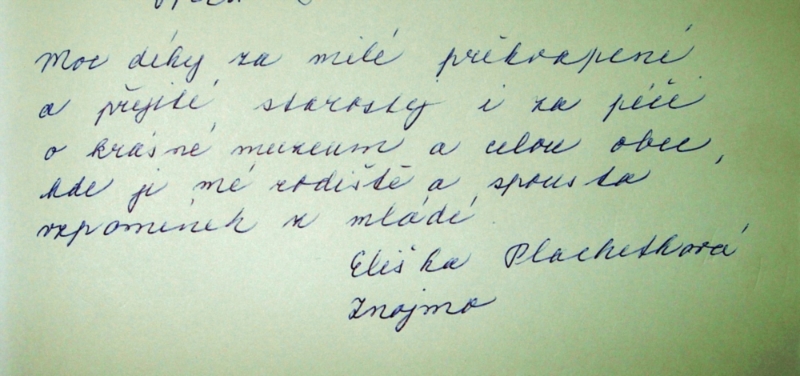 Moc díky za milé překvapení
a přijetí starosty i za péči
o krásné muzeum a celou obec,
kde je mé rodiště a spousta
vzpomínek z mládí.
Eliška Plachetková
Znojmo